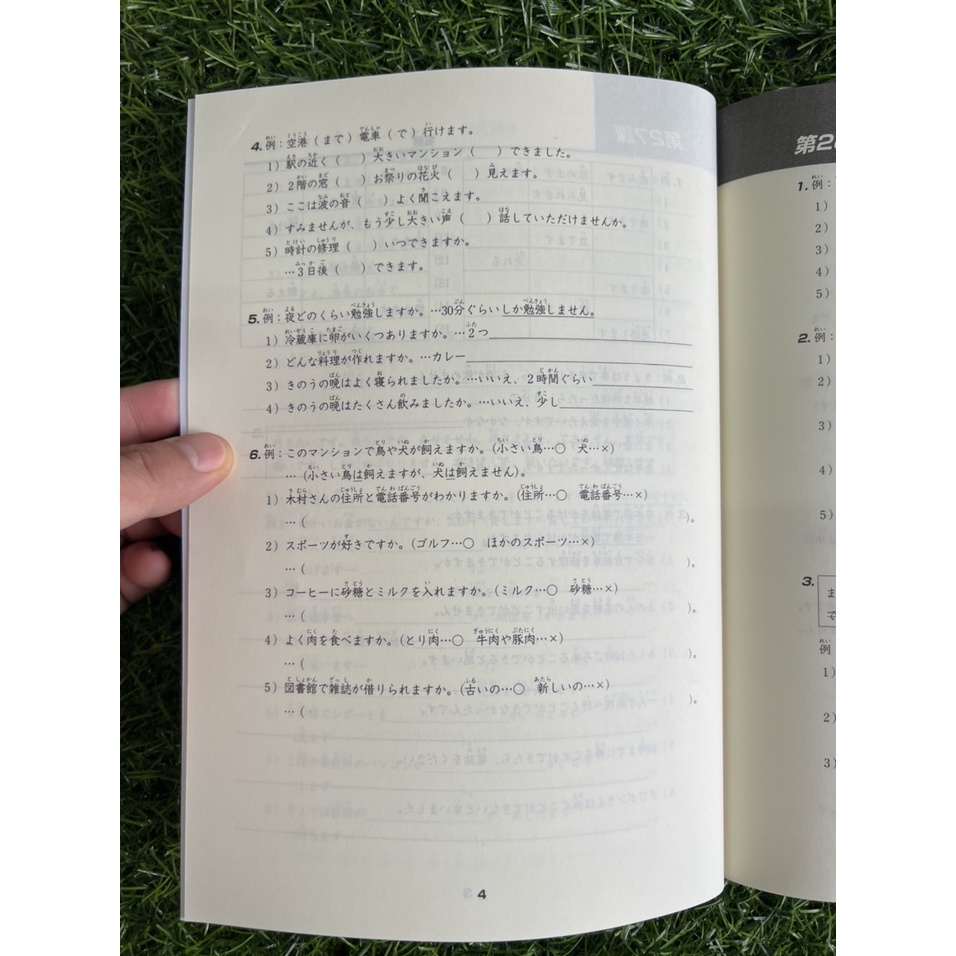 4. 例：空港（まで）電車（で）行けます。
1）駅の近く（　）大きいマンション（　）できました。
2）2階の窓（　）お祭りの花火（　）見えます。
3）ここは波の音（　）よく聞こえます。
4）すみませんが、もう少し大きい声（　）話していただけませんか。
5）時計の修理（　）いつできますか。
…3日後（　）できます。
5. 例：夜どのくらい勉強しますか。…30分ぐらいしか勉強しません。
1）冷蔵庫に卵がいくつありますか。…2つ
2）どんな料理が作れますか。…カレー
3）きのうの晩はよく寝られましたか。…いいえ、2時間ぐらい
4）きのうの晩はたくさん飲みましたか。…いいえ、少し
6. 例：このマンションで鳥や犬が飼えますか。（小さい鳥…○　犬…×）
…（小さい鳥は飼えますが、犬は飼えません）。
1）木村さんの住所と電話番号がわかりますか。（住所…○　電話番号…×）
…（　）。
2）スポーツが好きですか。（ゴルフ…○　ほかのスポーツ…×）
…（　）。
3）コーヒーに砂糖とミルクを入れますか。（ミルク…○　砂糖…×）
…（　）。
4）よく肉を食べますか。（とり肉…○　牛肉や豚肉…×）
…（　）。
5）図書館で雑誌が借りられますか。（古いの…○　新しいの…×）
…（　）。
4
第2
1. 例：
1）
2）
3）
4）
5）
2. 例：
1）
2）
3）
4）
5）
3.
ま
で
例
1）
2）
3）